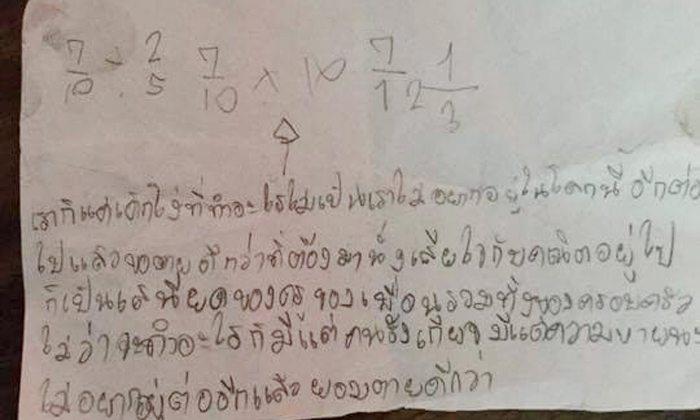 7/10 ÷ 2/5 7/10 × 10 7/12 1/3
เราก็แค่เด็กโง่ที่ทำอะไรไม่เป็นเราไม่อยากอยู่ในโลกนี้ อีกต่อ
ไปแล้วขอตายดีกว่าที่ต้องมานั่งเสียใจกับคณิตอยู่ไป
ก็เป็นเสนียดของครูของเพื่อนรวมทั้งของครอบครัว
ไม่ว่าจะทำอะไรก็มีแต่คนรังเกียจมีแต่ความ
ไม่อยากอยู่ต่ออีกแล้วยอมตายดีกว่า